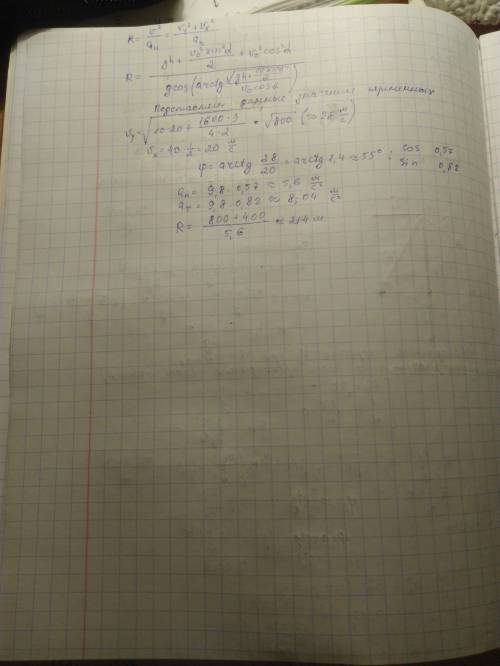 R = v²/aₙ = (vᵧ² + vₓ²)/aₙ
R = (gh + v₀² sin²α / 2 + v₀² cos²α) / (g cos(arctg √(gh + ) / (v₀ cos α)))
Подставляем данные значения переменных
vᵧ = √(10·20 + 1600·3/(4·2)) = √800 (≈ 28 м/с)
vₓ = 40·1/2 = 20 м/с
φ = arctg 28/20 = arctg 1,4 ≈ 55° ; cos 0,57 sin 0,82
aₙ = 9,8 · 0,57 ≈ 5,6 м/с²
aτ = 9,8 · 0,82 ≈ 8,04 м/с²
R = (800 + 400)/5,6 ≈ 214 м